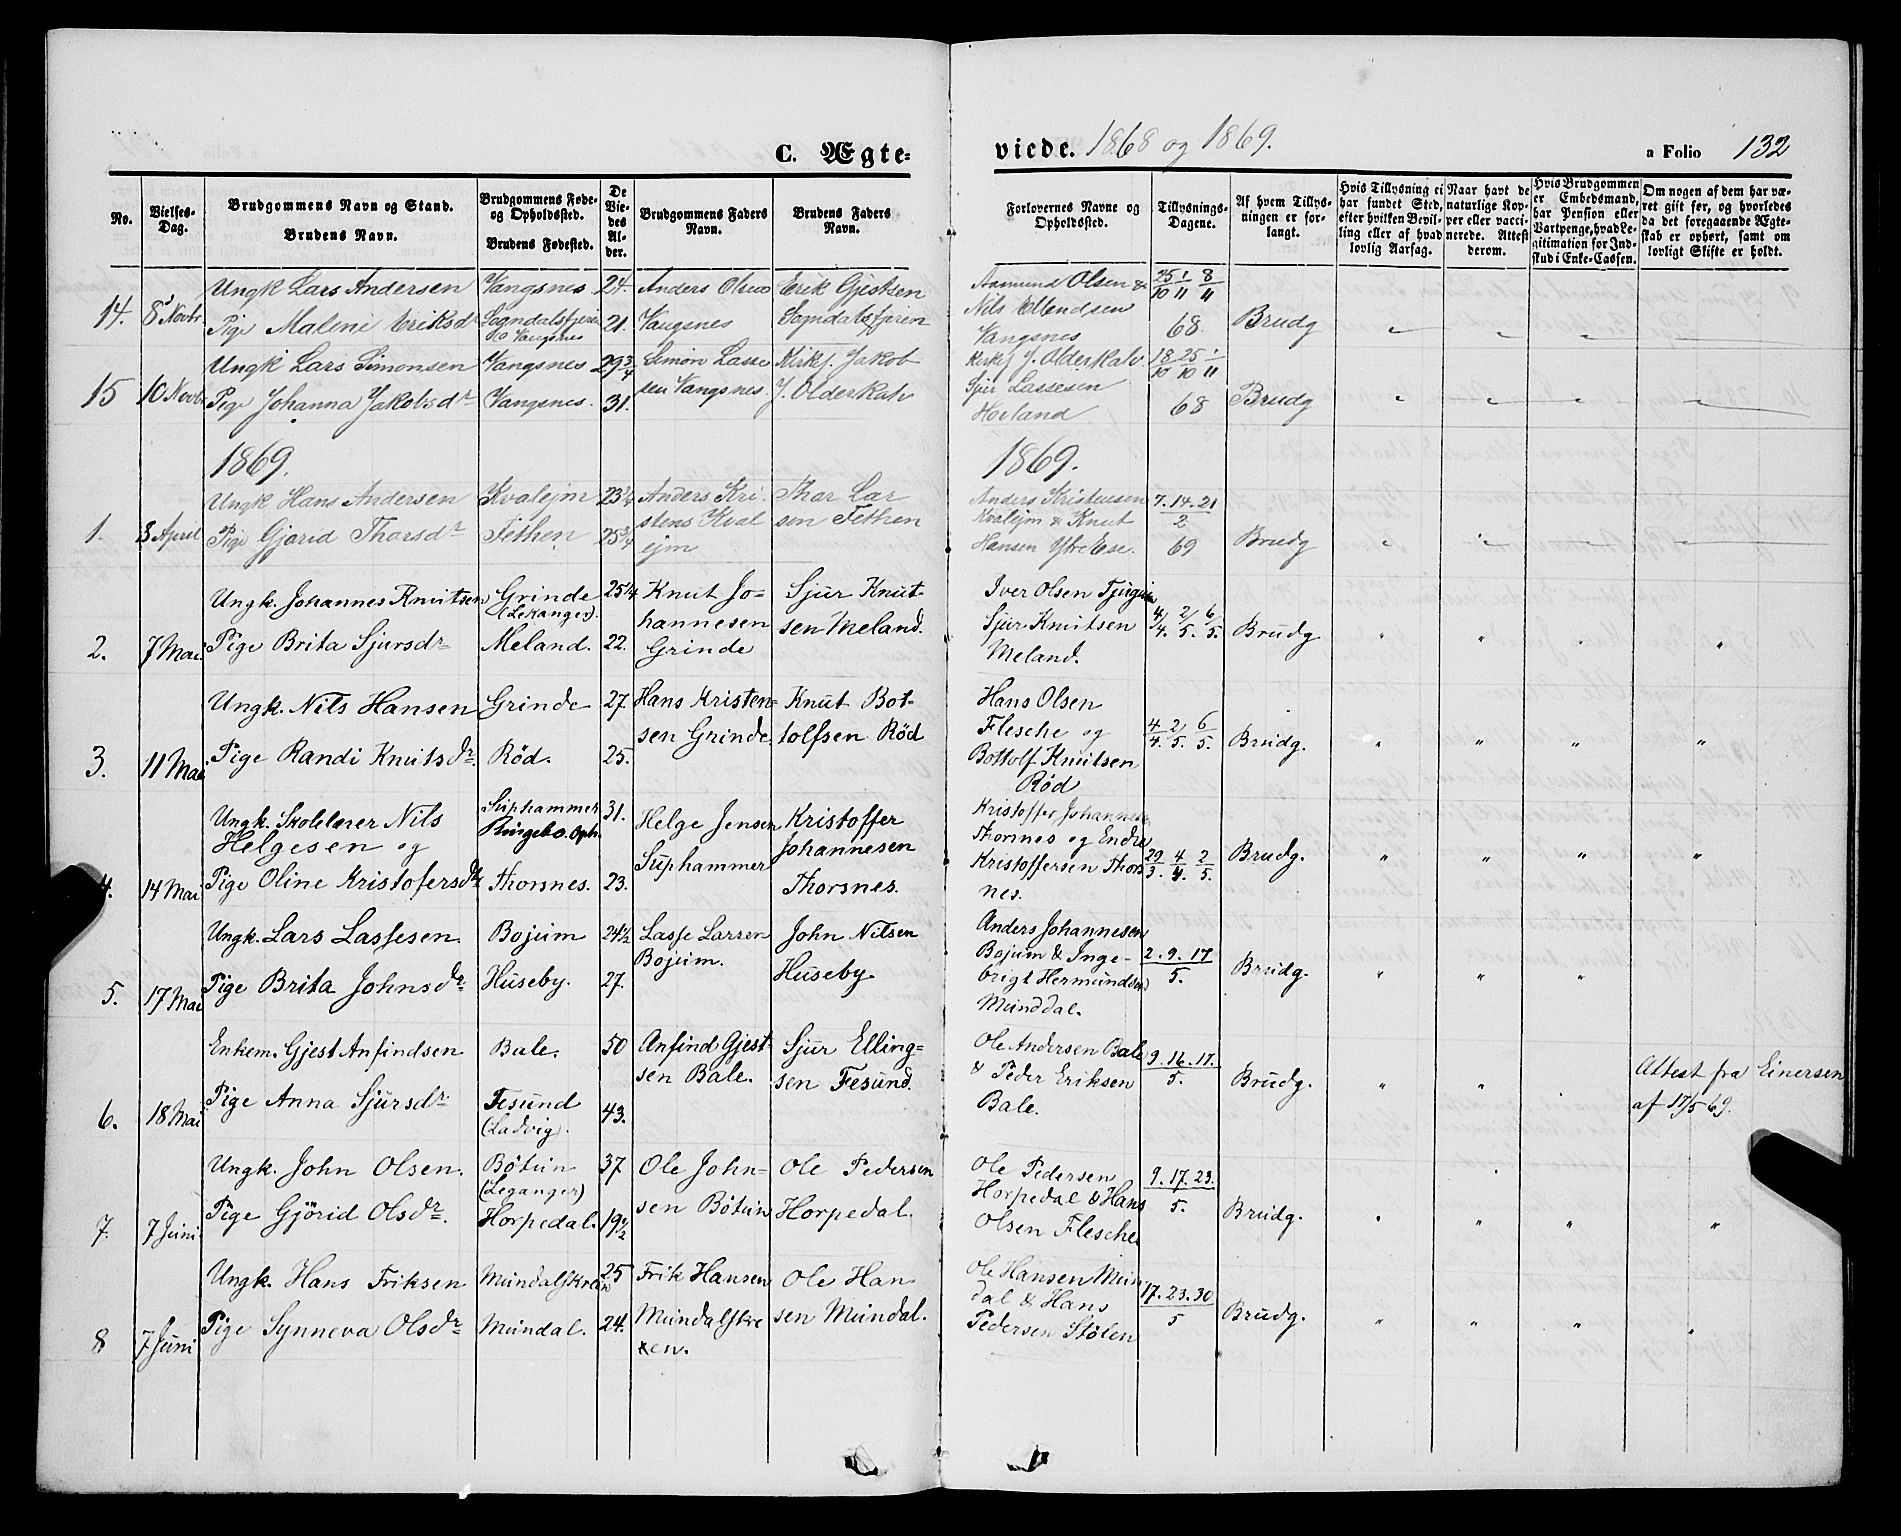 C. Ægte-
No.
Vielses-Dag.
Brudgommens Navn og Stand.
Brudens Navn.
Brudgommens Føde- og Opholdssted.
Brudens Fødested.
De Viedes Alder.
Brudgommens Faders Navn.
Brudens Faders Navn.
14. 8 Novbr
Ungk Lars Andersen Vangsnes 24. Anders Olsen Erik Gjestsen
Pige Malene Eriksdr Sogndalsfjæren 21. Vangsnes Sogndalsfjæren
Vangsnes
15 10 Novbr
Ungk Lars Simonsen Vangsnes 29 3/4 Simon Lasse Kirkj. Jakob
Pige Johanna Jakobsdr Vangsnes. 31. sen Vangsnes J. Olderkalv
1869.
1. 3 April
Ungk Hans Andersen Kvalejm 23 3/4 Anders Kri Thor Lar
Pige Gjørid Thorsdr Fethen 25 3/4 stens Kval sen Fethen
ejm
2. 7 Mai.
Ungk. Johannes Knutsen Grinde 25 1/4 Knut Jo= Sjur Knut-
(Lekanger). hannesen sen Meland.
Pige Brita Sjursdr Meland. 22. Grinde
3. 11 Mai
Ungk. Nils Hansen Grinde 27. Hans Kristen= Knut Bot-
sen Grinde. tolfsen Rød
Pige Randi Knutsdr. Rød. 25.
4. 14 Mai
Ungk. Skolelærer Nils Suphammer 31. Helge Jensen Kristoffer
Helgesen og Ringebo. Oph. Johannesen
Pige Oline Kristofersdr Thorsnes. 23. Suphammer Thorsnes.
5. 17 Mai
Ungk. Lars Lassesen Bojum 24 1/2 Lasse Larsen John Nilsen
Bojum.
Pige Brita Johnsdr Huseby. 27. Huseby.
6. 18 Mai
Enkem. Gjest Anfindsen Bale. 50 Anfind Gjest- Sjur Elling=
sen Bale. sen Fesund.
Pige Anna Sjursdr. Fesund 43.
(Ladvig).
7. 7 Juni
Ungk. John Olsen. Bøtun 37 Ole John= Ole Pedersen
(Leganger)
Pige Gjørid Olsdr. Horpedal. 19 1/2 sen Bøtun Horpedal.
8 7 Juni
Ungk. Hans Friksen Mundalskreen 25 Frik Hansen Ole Han
Pige Synneva Olsdr Mundal. 24. Mundalskre sen Mundal.
en.
viede. 1868 og 1869.
a Folio 132
Forlovernes Navne og Opholdssted.
Tillysnings-Dagene.
Af hvem Tillysningen er forlangt.
Hvis Tillysning ei har fundet Sted, efter hvilken Bevilling eller af hvad lovlig Aarsag.
Naar havt de naturlige Kopper eller vaccinerede. Attest derom.
Hvis Brudgommen er Embedsmand, har Pension eller Vartpenge, hvad Legitimation for Indskud i Enke-Cassen.
Om nogen af dem har været gift før, og hvorledes da det foregaaende Ægteskab er ophørt, samt om lovligt Skifte er holdt.
Aamund Olsen & 25/10 1/11 8/11
Nils Ellendsen
Vangsnes 68. Brudg
Kirkj J. Olderkalv. 18/10 25/10 1/11
Sjur Lassesen
Hovland 68 Brudg
1869.
Anders Kristensen 7.14.21
Kvalejm & Knut 2
Hansen Ytre Ese. 69 Brudg
Iver Olsen Tjugum
Sjur Knutsen 4/4. 2/5. 6/5. Brudg
Meland.
Hans Olsen
Flesche og 4/4. 2/5. 6/5. Brudg.
Bottolf Knutsen
Rød
Kristoffer Johannesen
Thorsnes og Endre
Kristoffersen Thors 29/3. 4/4. 2/5. Brudg.
nes.
Anders Johannesen
Bojum & Inge- 2.9.17
brigt Hermundsen 5. Brudg.
Munddal.
Ole Andersen Bale 9.16.17.
& Peder Eriksen 5. Brudg.
Bale.
Attest fra Einersen
af 17/5 69.
Ole Pedersen 9.17.23.
Horpedal & Hans 5. Brudg.
Olsen Flesche
Ole Hansen Mun
dal & Hans 17.23.30 Brudg.
Pedersen Stølen 5